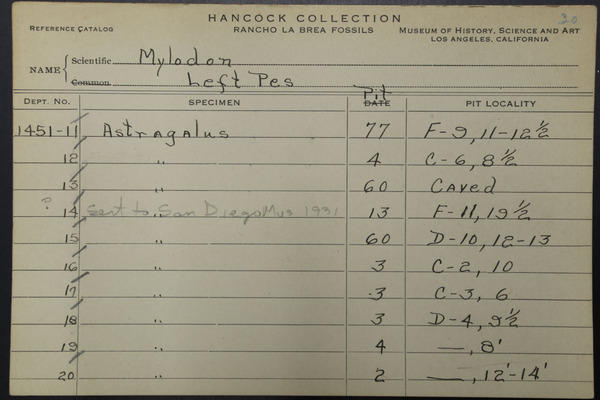 HANCOCK COLLECTION 20
REFERENCE CATALOG RANCHO LA BREA FOSSILS MUSEUM OF HISTORY, SCIENCE AND ART
LOS ANGELES, CALIFORNIA
NAME Scientific Mylodon
Common Left Pes
DEPT. NO. SPECIMEN DATE Pit PIT LOCALITY
1451-11 Astragalus 77 F-9, 11-12½
12 " 4 C-6, 8½
13 " 60 Caved
? 14 Sent to " San Diego Mus 1931 13 F-11, 19½
15 " 60 D-10, 12-13
16 " 3 C-2, 10
17 " 3 C-3, 6
18 " 3 D-4, 9½
19 " 4 —, 8'
20 " 2 —, 12'-14'